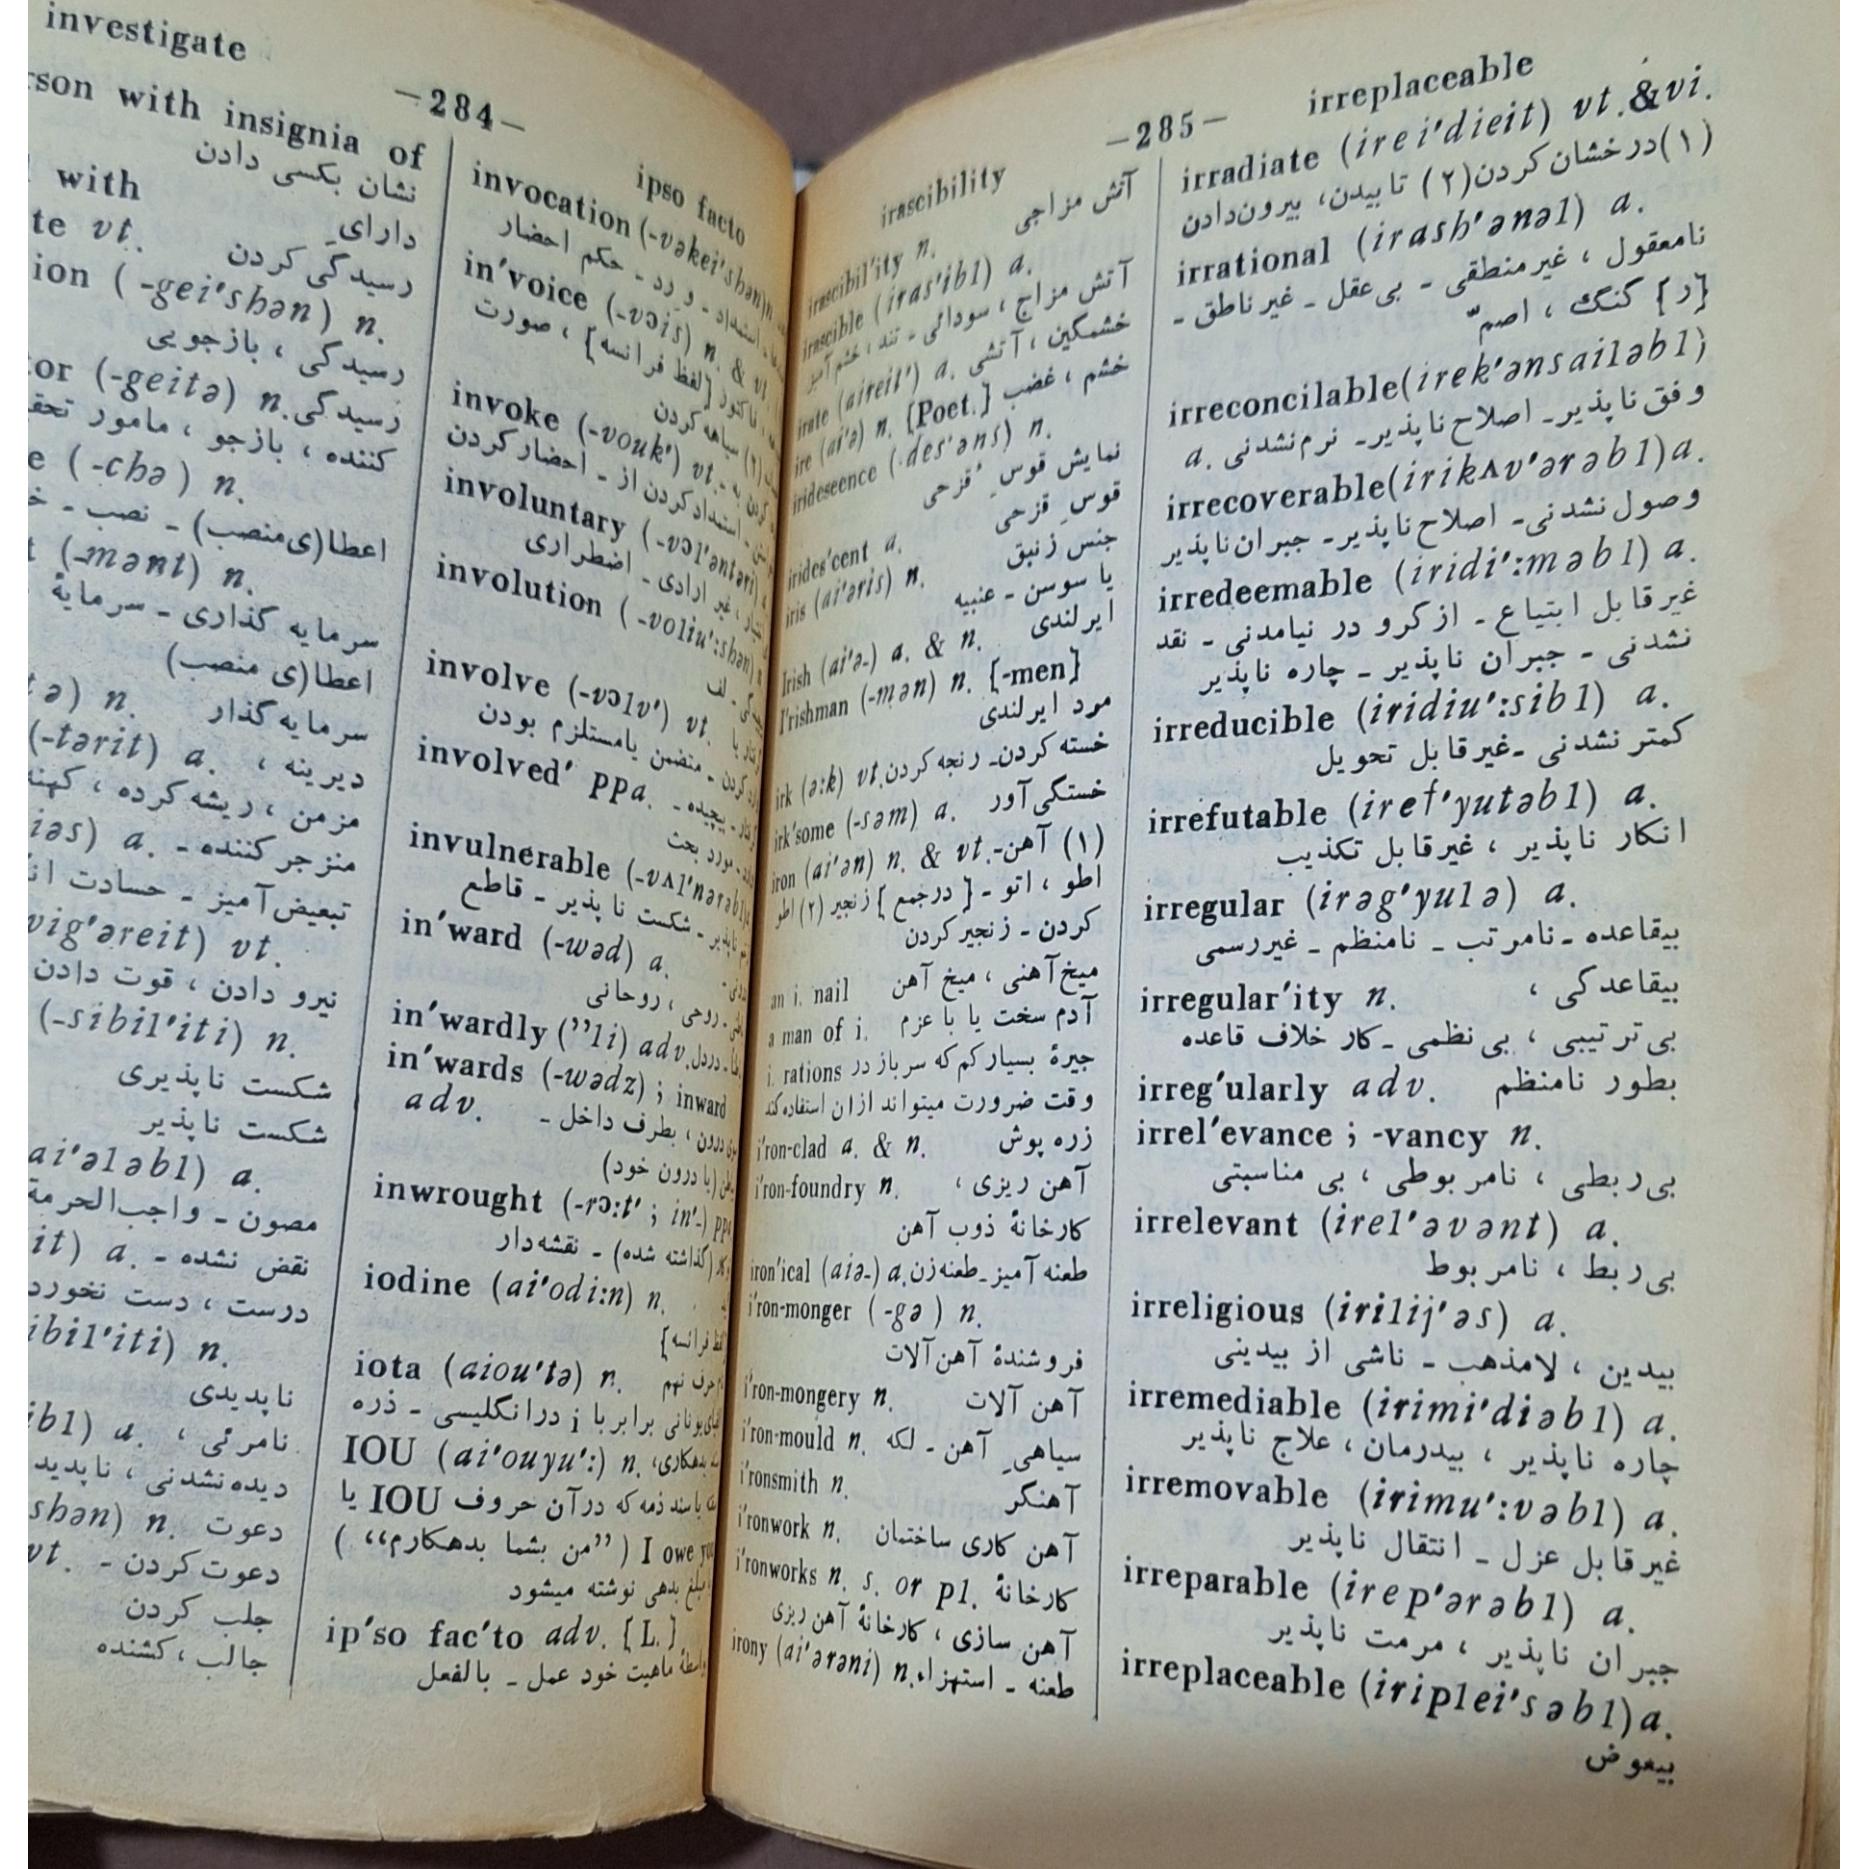 investigate
-284-
ipso facto
rson with insignia of
نشان بکسی دادن
with
دارای
te vt.
رسیدگی کردن
ion (-gei'shən) n.
رسیدگی ، بازجویی
tor (-geitə) n. رسیدگی
کننده ، بازجو ، مامور
e (-chə) n.
اعطا(ی منصب) ـ نصب ـ
t (-mənt) n.
سرمایه گذاری ـ سرمایهٔ
اعطا(ی منصب)
tə) n. سرمایه گذار
(-tərit) a. دیرینه ،
مزمن ، ریشه کرده ، کهنه
iəs) a. منزجر کننده ـ
تبعیض آمیز ـ حسادت
vig'əreit) vt.
نیرو دادن ، قوت دادن
(-sibil'iti) n.
شکست ناپذیری
شکست ناپذیر
ai'ələbl) a.
مصون ـ واجب الحرمة
it) a. نقض نشده ـ
درست ، دست نخورده
ibil'iti) n.
ناپدیدی
ibl) a. نامرئی ،
دیده نشدنی ، ناپدید
shən) n. دعوت
vt. دعوت کردن ـ
جلب کردن
جالب ، کشنده
invocation (-vəkei'shən) n
استمداد ـ و رد ـ حکم احضار
in'voice (-vɔis) n. & vt.
[لفظ فرانسه] ، صورت
سیاهه کردن
invoke (-vouk') vt.
استمداد کردن از ـ احضار کردن
involuntary (-vɔl'əntəri)
غیر ارادی ـ اضطراری
involution (-voliu':shən) n
لف
involve (-vɔlv') vt.
متضمن یا مستلزم بودن
involved' ppa. پیچیده ـ
مورد بحث
invulnerable (-vʌl'nərəbl
شکست ناپذیر ـ قاطع
in'ward (-wəd) a.
روحی ، روحانی
in'wardly (''li) adv. دردل
in'wards (-wədz) ; inward
adv. درون ، بطرف داخل ـ
(با درون خود)
inwrought (-rɔ:t' ; in'-) ppa
(گذاشته شده) ـ نقشه دار
iodine (ai'odi:n) n.
فرانسه]
iota (aiou'tə) n. حرف نهم
یونانی برابر با i درانگلیسی ـ ذره
IOU (ai'ouyu':) n. بدهکاری،
یا سند ذمه که در آن حروف IOU یا
I owe you (”من بشما بدهکارم“)
مبلغ بدهی نوشته میشود
ip'so fac'to adv. [L.]
ماهیت خود عمل ـ بالفعل
irascibility
-285-
irreplaceable
irascibil'ity n. آتش مزاجی
irascible (iras'ibl) a.
آتش مزاج ، سودائی ـ تند ، خشم آمیز
irate (aireit') a. خشمگین ، آتشی
ire (ai'ə) n. [Poet.] خشم ، غضب
irideseence (-des'əns) n.
نمایش قوس قزحی
irides'cent a. قوس قزحی
iris (ai'əris) n. جنس زنبق
یا سوسن ـ عنبیه
Irish (ai'ə-) a. & n. ایرلندی
I'rishman (-mən) n. [-men]
مرد ایرلندی
irk (ə:k) vt. خسته کردن ـ رنجه کردن
irk'some (-səm) a. خستگی آور
iron (ai'ən) n. & vt. (۱) آهن ـ
اطو ، اتو ـ [درجمع] زنجیر (۲) اطو
کردن ـ زنجیر کردن
an i. nail میخ آهنی ، میخ آهن
a man of i. آدم سخت یا با عزم
i. rations جیرهٔ بسیار کم که سرباز در
وقت ضرورت میتواند ازان استفاده کند
i'ron-clad a. & n. زره پوش
i'ron-foundry n. آهن ریزی ،
کارخانهٔ ذوب آهن
iron'ical (aiə-) a. طعنه آمیز ـ طعنه زن
i'ron-monger (-gə) n.
فروشندهٔ آهن آلات
i'ron-mongery n. آهن آلات
i'ron-mould n. سیاهی آهن ـ لکه
i'ronsmith n. آهنگر
i'ronwork n. آهن کاری ساختمان
i'ronworks n. s. or pl. کارخانهٔ
آهن سازی ، کارخانهٔ آهن ریزی
irony (ai'ərəni) n. طعنه ـ استهزاء
irradiate (irei'dieit) vt. & vi.
(۱) درخشان کردن (۲) تابیدن، بیرون دادن
irrational (irash'ənəl) a.
نامعقول ، غیرمنطقی ـ بی عقل ـ غیر ناطق ـ
[ر] گنگ ، اصمّ
irreconcilable (irek'ənsailəbl)
a. وفق ناپذیر ـ اصلاح ناپذیر ـ نرم نشدنی
irrecoverable (irikʌv'ərəbl) a.
وصول نشدنی ـ اصلاح ناپذیر ـ جبران ناپذیر
irredeemable (iridi':məbl) a.
غیر قابل ابتیاع ـ از گرو در نیامدنی ـ نقد
نشدنی ـ جبران ناپذیر ـ چاره ناپذیر
irreducible (iridiu':sibl) a.
کمتر نشدنی ـ غیر قابل تحویل
irrefutable (iref'yutəbl) a.
انکار ناپذیر ، غیر قابل تکذیب
irregular (irəg'yulə) a.
بیقاعده ـ نامرتب ـ نامنظم ـ غیررسمی
irregular'ity n. بیقاعدگی ،
بی ترتیبی ، بی نظمی ـ کار خلاف قاعده
irreg'ularly adv. بطور نامنظم
irrel'evance ; -vancy n.
بی ربطی ، نامربوطی ، بی مناسبتی
irrelevant (irel'əvənt) a.
بی ربط ، نامربوط
irreligious (irilij'əs) a.
بیدین ، لامذهب ـ ناشی از بیدینی
irremediable (irimi'diəbl) a.
چاره ناپذیر ، بیدرمان ، علاج ناپذیر
irremovable (irimu':vəbl) a.
غیر قابل عزل ـ انتقال ناپذیر
irreparable (irep'ərəbl) a.
جبران ناپذیر ، مرمت ناپذیر
irreplaceable (iriplei'səbl) a.
بیعوض